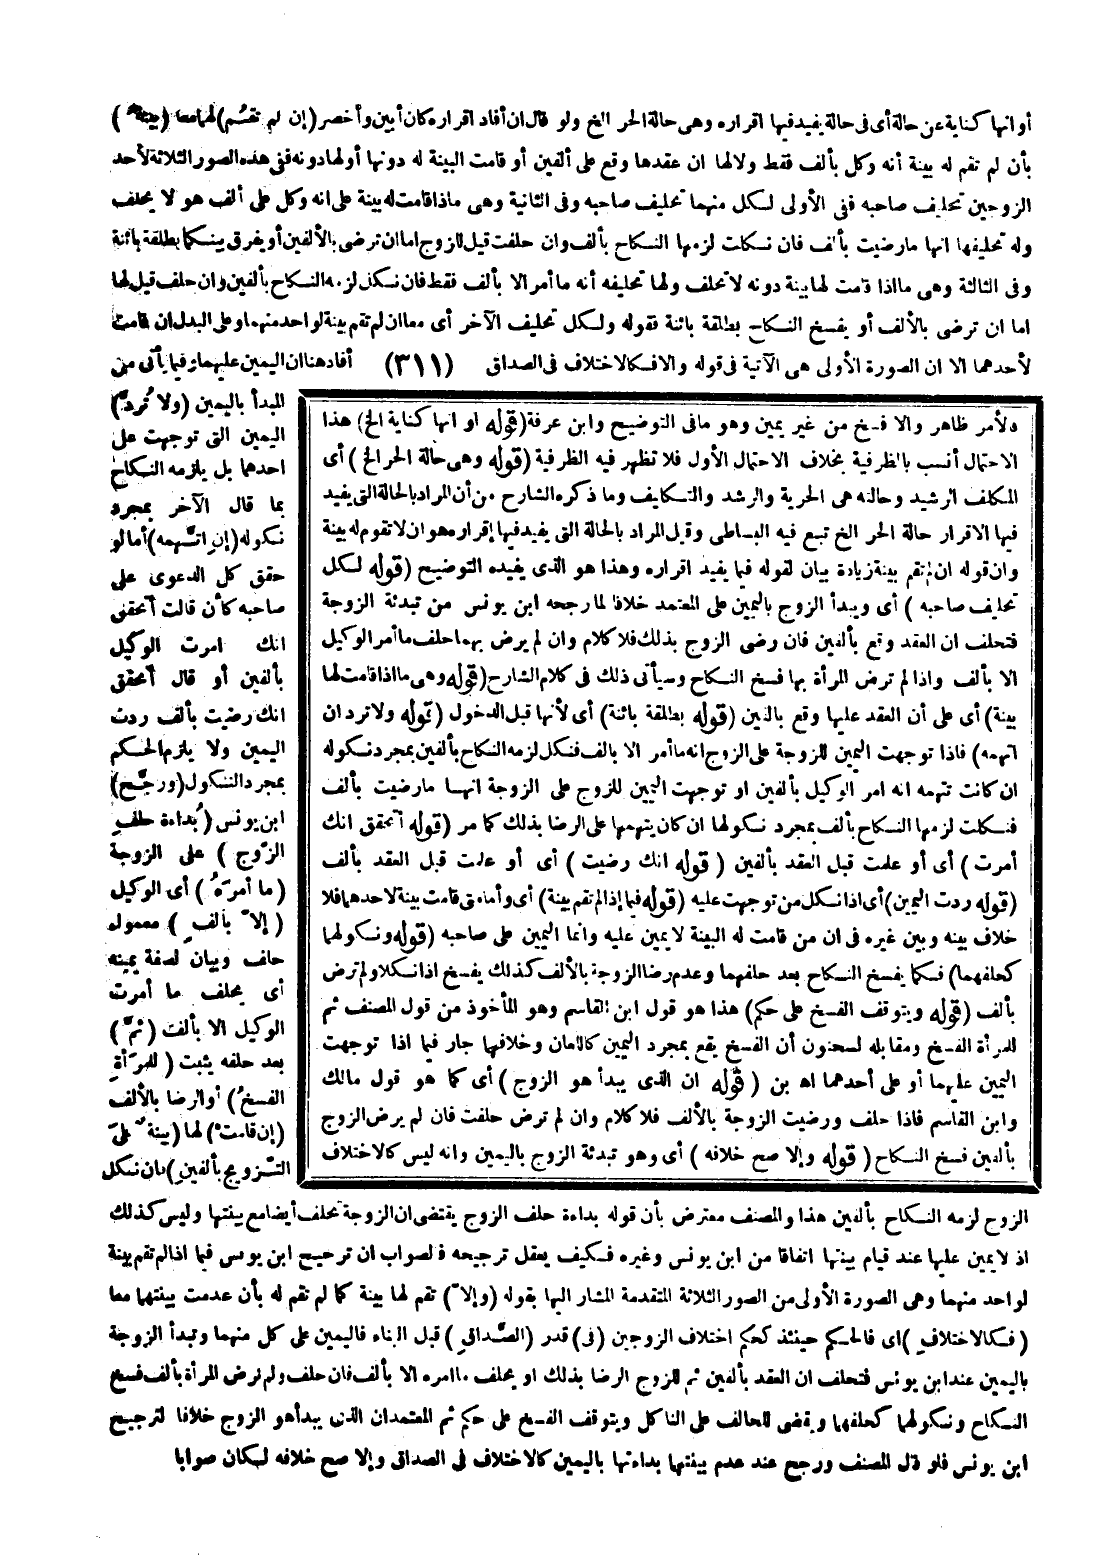 أو انها كناية عن حالة أى فى حالة يفيد فيها اقراره وهى حالة الحر الخ ولو قال ان أفاد اقراره كان أبين وأخصر (إن لم تقُم) لهامعا (بينة)
بأن لم تقم له بينة أنه وكل بألف فقط ولالها ان عقدها وقع على ألفين أو قامت البينة له دونها أو لها دونه ففى هذه الصور الثلاثة لأحد
الزوجين تحليف صاحبه ففى الأولى لكل منهما تحليف صاحبه وفى الثانية وهى ماذا قامت له بينة على انه وكل على ألف هو لا يحلف
وله تحليفها انها مارضيت بألف فان نكلت لزمها النكاح بألف وان حلفت قيل للزوج اما ان ترضى بالألفين أو يفرق بينكما بطلقة بائنة
وفى الثالثة وهى مااذا قامت لها بينة دونه لا تحلف ولها تحليفه أنه ما أمر الا بألف فقط فان نكل لزمه النكاح بألفين وان حلف قيل لها
اما ان ترضى بالألف أو يفسخ النكاح بطلقة بائنة فقوله ولكل تحليف الآخر أى معا ان لم تقم بينة لواحد منهما وعلى البدل ان قامت
لأحدهما الا ان الصورة الأولى هى الآتية فى قوله والا فكالاختلاف فى الصداق (٣١١) أفاد هنا ان اليمين عليهما وفيما يأتى من
المبدأ باليمين (ولا تُردّ)
اليمين التى توجهت على
احدهما بل يلزمه النكاح
بما قال الآخر بمجرد
نكوله (إن اتّهمه) أما لو
حقق كل الدعوى على
صاحبه كأن قالت أتحقق
انك امرت الوكيل
بألفين أو قال أتحقق
انك رضيت بألف ردت
اليمين ولا يلزم الحكم
بمجرد النكول (ورجّح)
ابن يونس (بُداءة حلفِ
الزّوج) على الزوجة
(ما أمرَهُ) أى الوكيل
(إلاّ بألفٍ) معموله
حلف وبيان لصفة يمينه
أى يحلف ما أمرت
الوكيل الا بألف (ثمّ)
بعد حلفه يثبت (للمرأةِ
الفسخُ) أو الرضا بالألف
(إن قامتْ) لها (بينةٌ على
التّزويج بألفينِ) فان نكل
دلأمر ظاهر والا فسخ من غير يمين وهو مافى التوضيح وابن عرفة (قوله او انها كناية الخ) هذا
الاحتمال أنسب بالظرفية بخلاف الاحتمال الأول فلا تظهر فيه الظرفية (قوله وهى حالة الحر الخ) أى
المكلف الرشيد وحالته هى الحرية والرشد والتكليف وما ذكره الشارح من أن المراد بالحالة التى يفيد
فيها الاقرار حالة الحر الخ تبع فيه البساطى وقيل المراد بالحالة التى يفيد فيها إقراره هو ان لا تقوم له بينة
وان قوله ان لم تقم بينة زيادة بيان لقوله فيما يفيد اقراره وهذا هو الذى يفيده التوضيح (قوله لكل
تحليف صاحبه) أى ويبدأ الزوج باليمين على المعتمد خلافا لما رجحه ابن يونس من تبدئة الزوجة
فتحلف ان العقد وقع بألفين فان رضى الزوج بذلك فلا كلام وان لم يرض بهما حلف ما أمر الوكيل
الا بألف واذا لم ترض المرأة بها فسخ النكاح وسيأتى ذلك فى كلام الشارح (قوله وهى مااذا قامت لها
بينة) أى على أن العقد عليها وقع بألفين (قوله بطلقة بائنة) أى لأنها قبل الدخول (قوله ولا ترد ان
اتهمه) فاذا توجهت اليمين للزوجة على الزوج انه ما أمر الا بالف فنكل لزمه النكاح بألفين بمجرد نكوله
ان كانت تتهمه انه امر الوكيل بألفين او توجهت اليمين للزوج على الزوجة انها مارضيت بألف
فنكلت لزمها النكاح بألف بمجرد نكولها ان كان يتهمها على الرضا بذلك كما مر (قوله أتحقق انك
أمرت) أى أو علمت قبل العقد بألفين (قوله انك رضيت) أى أو علمت قبل العقد بألف
(قوله ردت اليمين) أى اذا نكل من توجهت عليه (قوله فيما إذا لم تقم بينة) أى وأما فى قامت بينة لاحدهما فلا
خلاف بينه وبين غيره فى ان من قامت له البينة لا يمين عليه وانما اليمين على صاحبه (قوله ونكولهما
كحلفهما) فكما يفسخ النكاح بعد حلفهما وعدم رضا الزوجة بالألف كذلك يفسخ اذا نكلا ولم ترض
بألف (قوله ويتوقف الفسخ على حكم) هذا هو قول ابن القاسم وهو المأخوذ من قول المصنف ثم
للمرأة الفسخ ومقابله لسحنون أن الفسخ يقع بمجرد اليمين كاللعان وخلافهما جار فيما اذا توجهت
اليمين عليهما أو على أحدهما اه بن (قوله ان الذى يبدأ هو الزوج) أى كما هو قول مالك
وابن القاسم فاذا حلف ورضيت الزوجة بالألف فلا كلام وان لم ترض حلفت فان لم يرض الزوج
بألفين فسخ النكاح (قوله وإلا صح خلافه) أى وهو تبدئة الزوج باليمين وانه ليس كالاختلاف
الزوج لزمه النكاح بألفين هذا والمصنف معترض بأن قوله بداءة حلف الزوج يقتضى ان الزوجة تحلف أيضا مع بينتها وليس كذلك
اذ لا يمين عليها عند قيام بينتها اتفاقا من ابن يونس وغيره فكيف يعقل ترجيحه فالصواب ان ترجيح ابن يونس فيما اذا لم تقم بينة
لواحد منهما وهى الصورة الأولى من الصور الثلاثة المتقدمة المشار اليها بقوله (وإلاّ) تقم لها بينة كما لم تقم له بأن عدمت بينتهما معا
(فكالاختلافِ) أى فالحكم حينئذ كحكم اختلاف الزوجين (فى) قدر (الصّداقِ) قبل البناء فاليمين على كل منهما وتبدأ الزوجة
باليمين عند ابن يونس فتحلف ان العقد بألفين ثم للزوج الرضا بذلك او يحلف ما امره الا بألف فان حلف ولم ترض المرأة بألف فسخ
النكاح ونكولهما كحلفهما ويقضى للحالف على الناكل ويتوقف الفسخ على حكم ثم المعتمدان الذى يبدأ هو الزوج خلافا لترجيح
ابن يونس فلو قال المصنف ورجح عند عدم بينتهما بداءتها باليمين كالاختلاف فى الصداق وإلا صح خلافه لكان صوابا